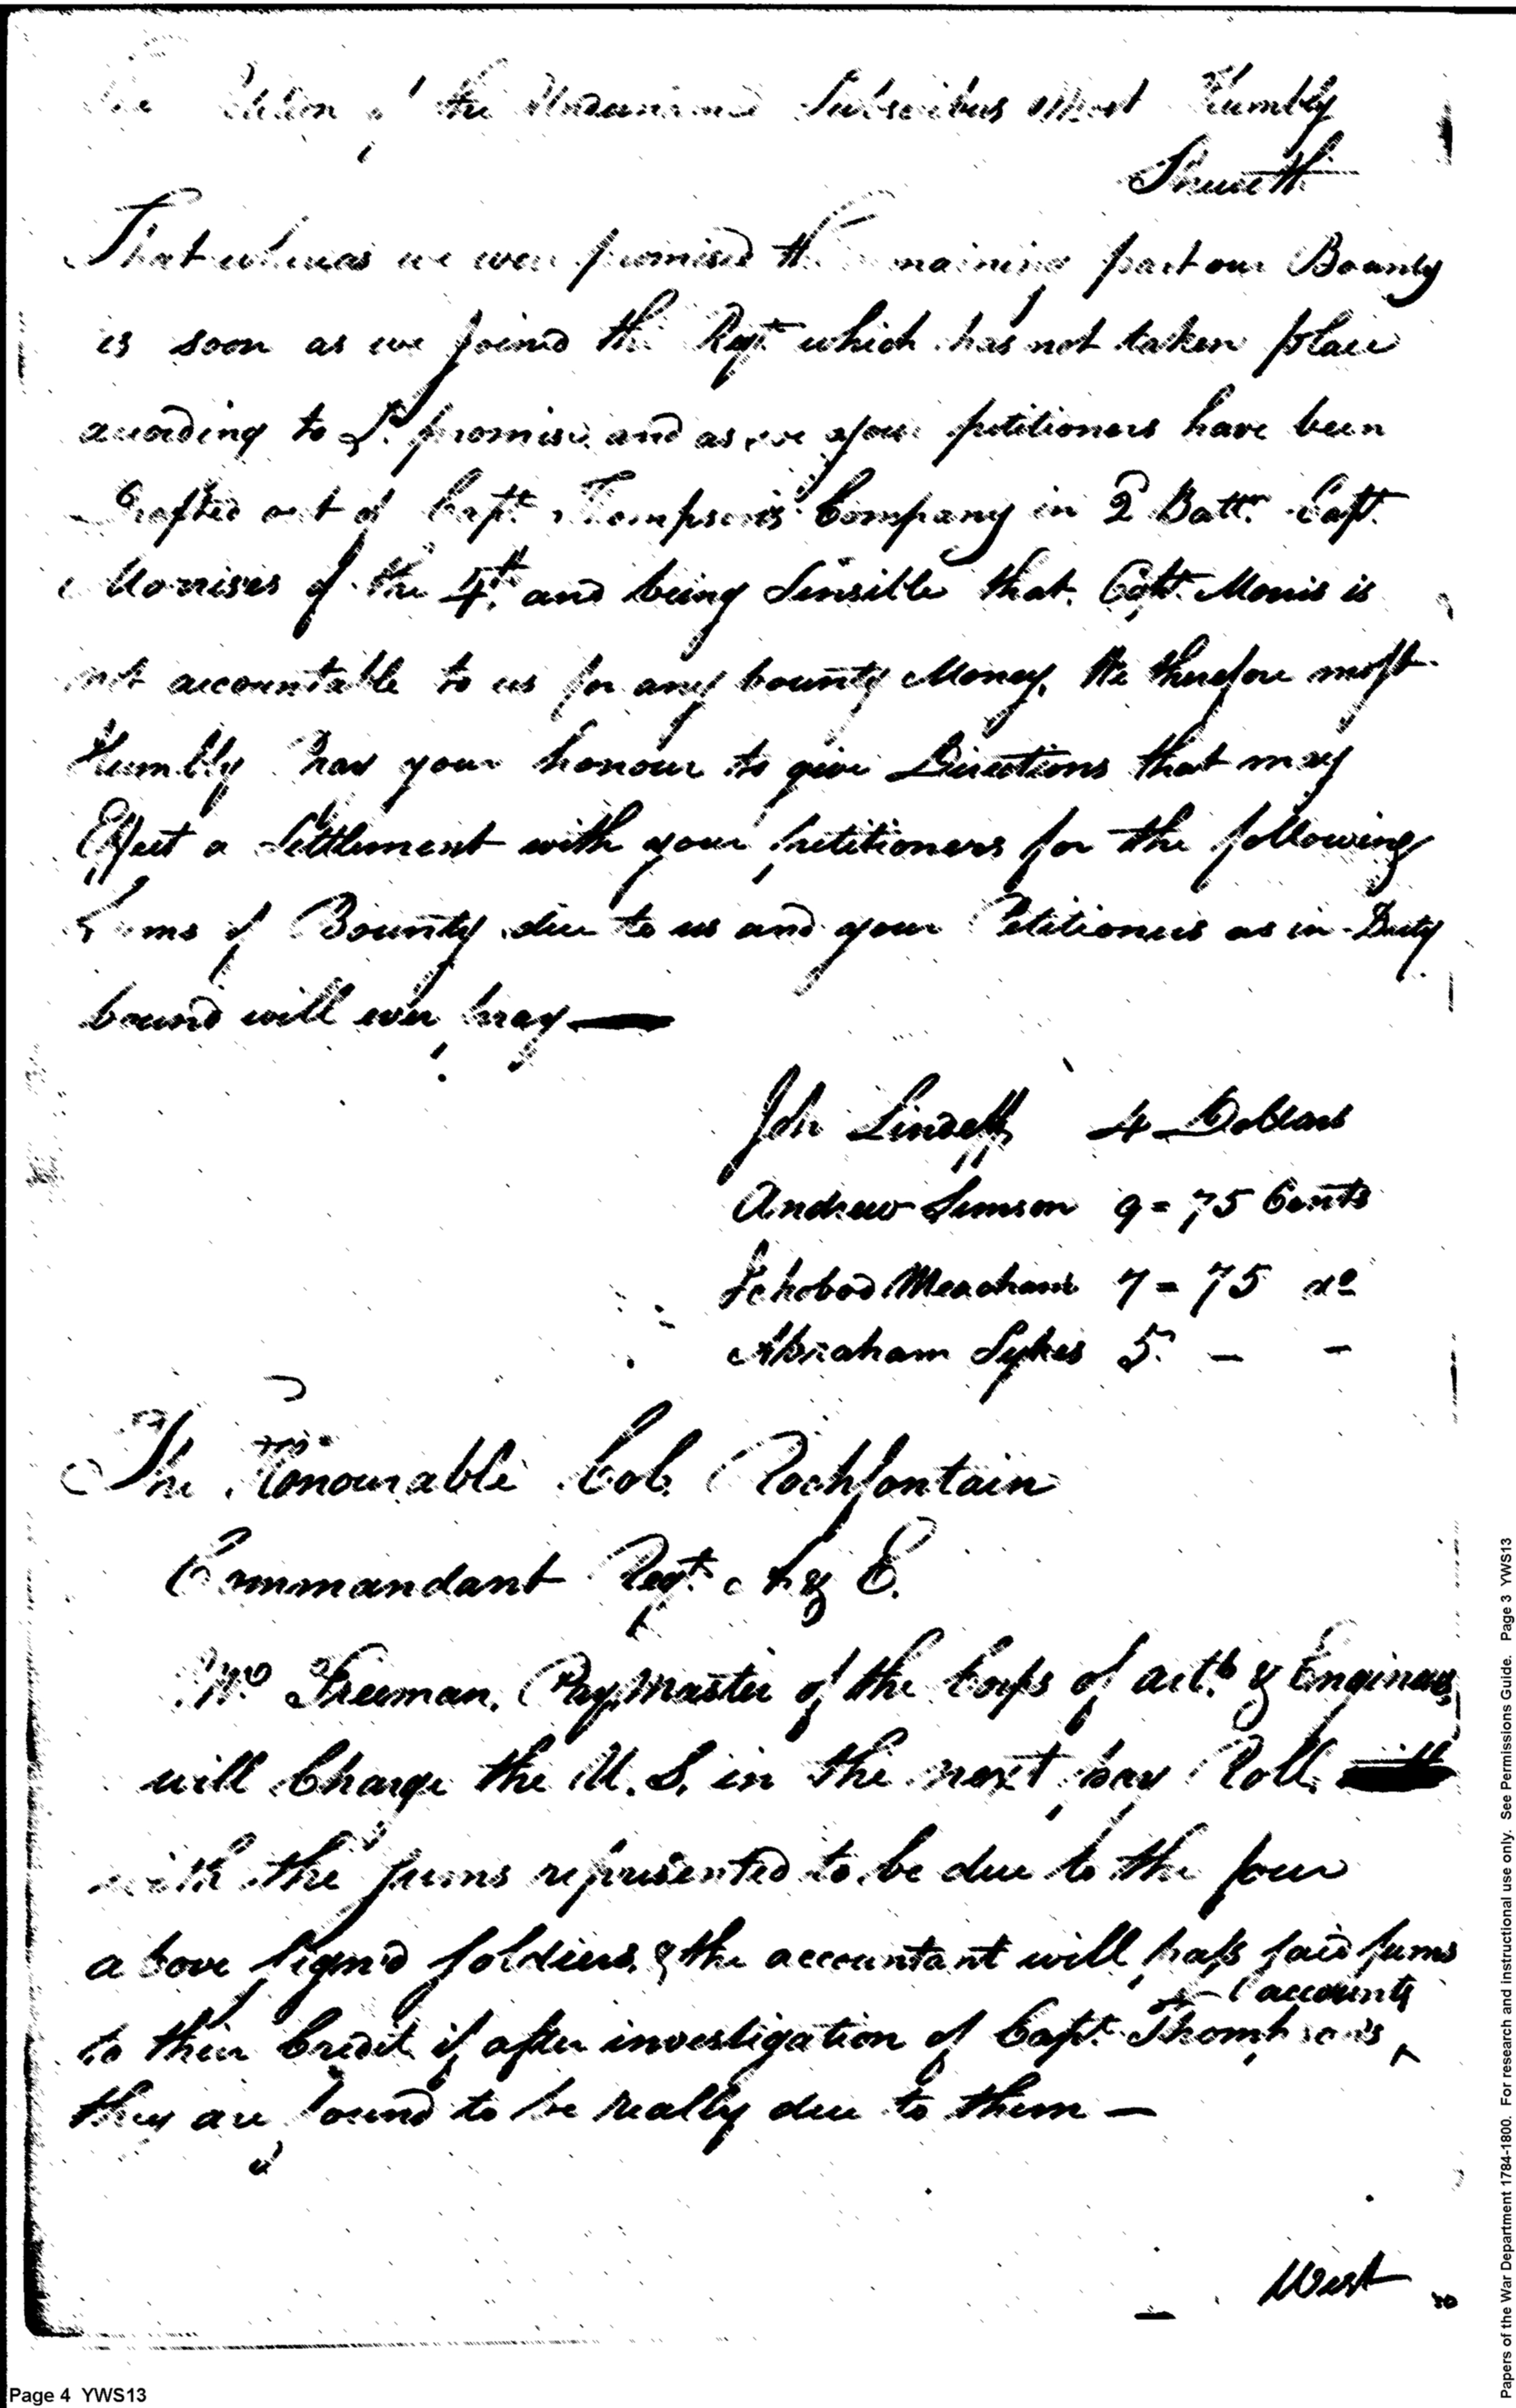 The Petition of the Undernamed Subscribers Most Humbly
Sheweth
That whereas we were promised the remaining part our Bounty
as soon as we Joined the Regt. which has not taken place
acording to promise and as we your petitioners have been
Drafted out of Capt. Thompson's Company in 2 Battn. Capt.
Morrises of the 4th. and being Sensible that Capt. Morris is
not accountable to us for any bounty Money, We therefore most
Humbly Pray your honour to give Directions that may
Effect a Settlement with your petitioners for the following
Sums of Bounty due to us and your Petitioners as in Duty
bound will ever pray —
Joh 4 Dollars
Andrew Simson 9 = 75 Cents
Ichobod Meacham 7 = 75 do
Abraham Sykes 5. — —
The Honourable Col. Rochfontain
Commandant Regt. A & E.
Mr. Freeman, Pay Master of the Corps of art. & Engineers
will Charge the U. S. in the next pay Roll
with the sums represented to be due to the four
above sign'd soldiers, & the accountant will pass said sums
accounts
to their Credit if after investigation of Capt. Thompson's ^
they are found to be really due to them —
West
Page 4 YWS13
Papers of the War Department 1784-1800. For research and instructional use only. See Permissions Guide. Page 3 YWS13